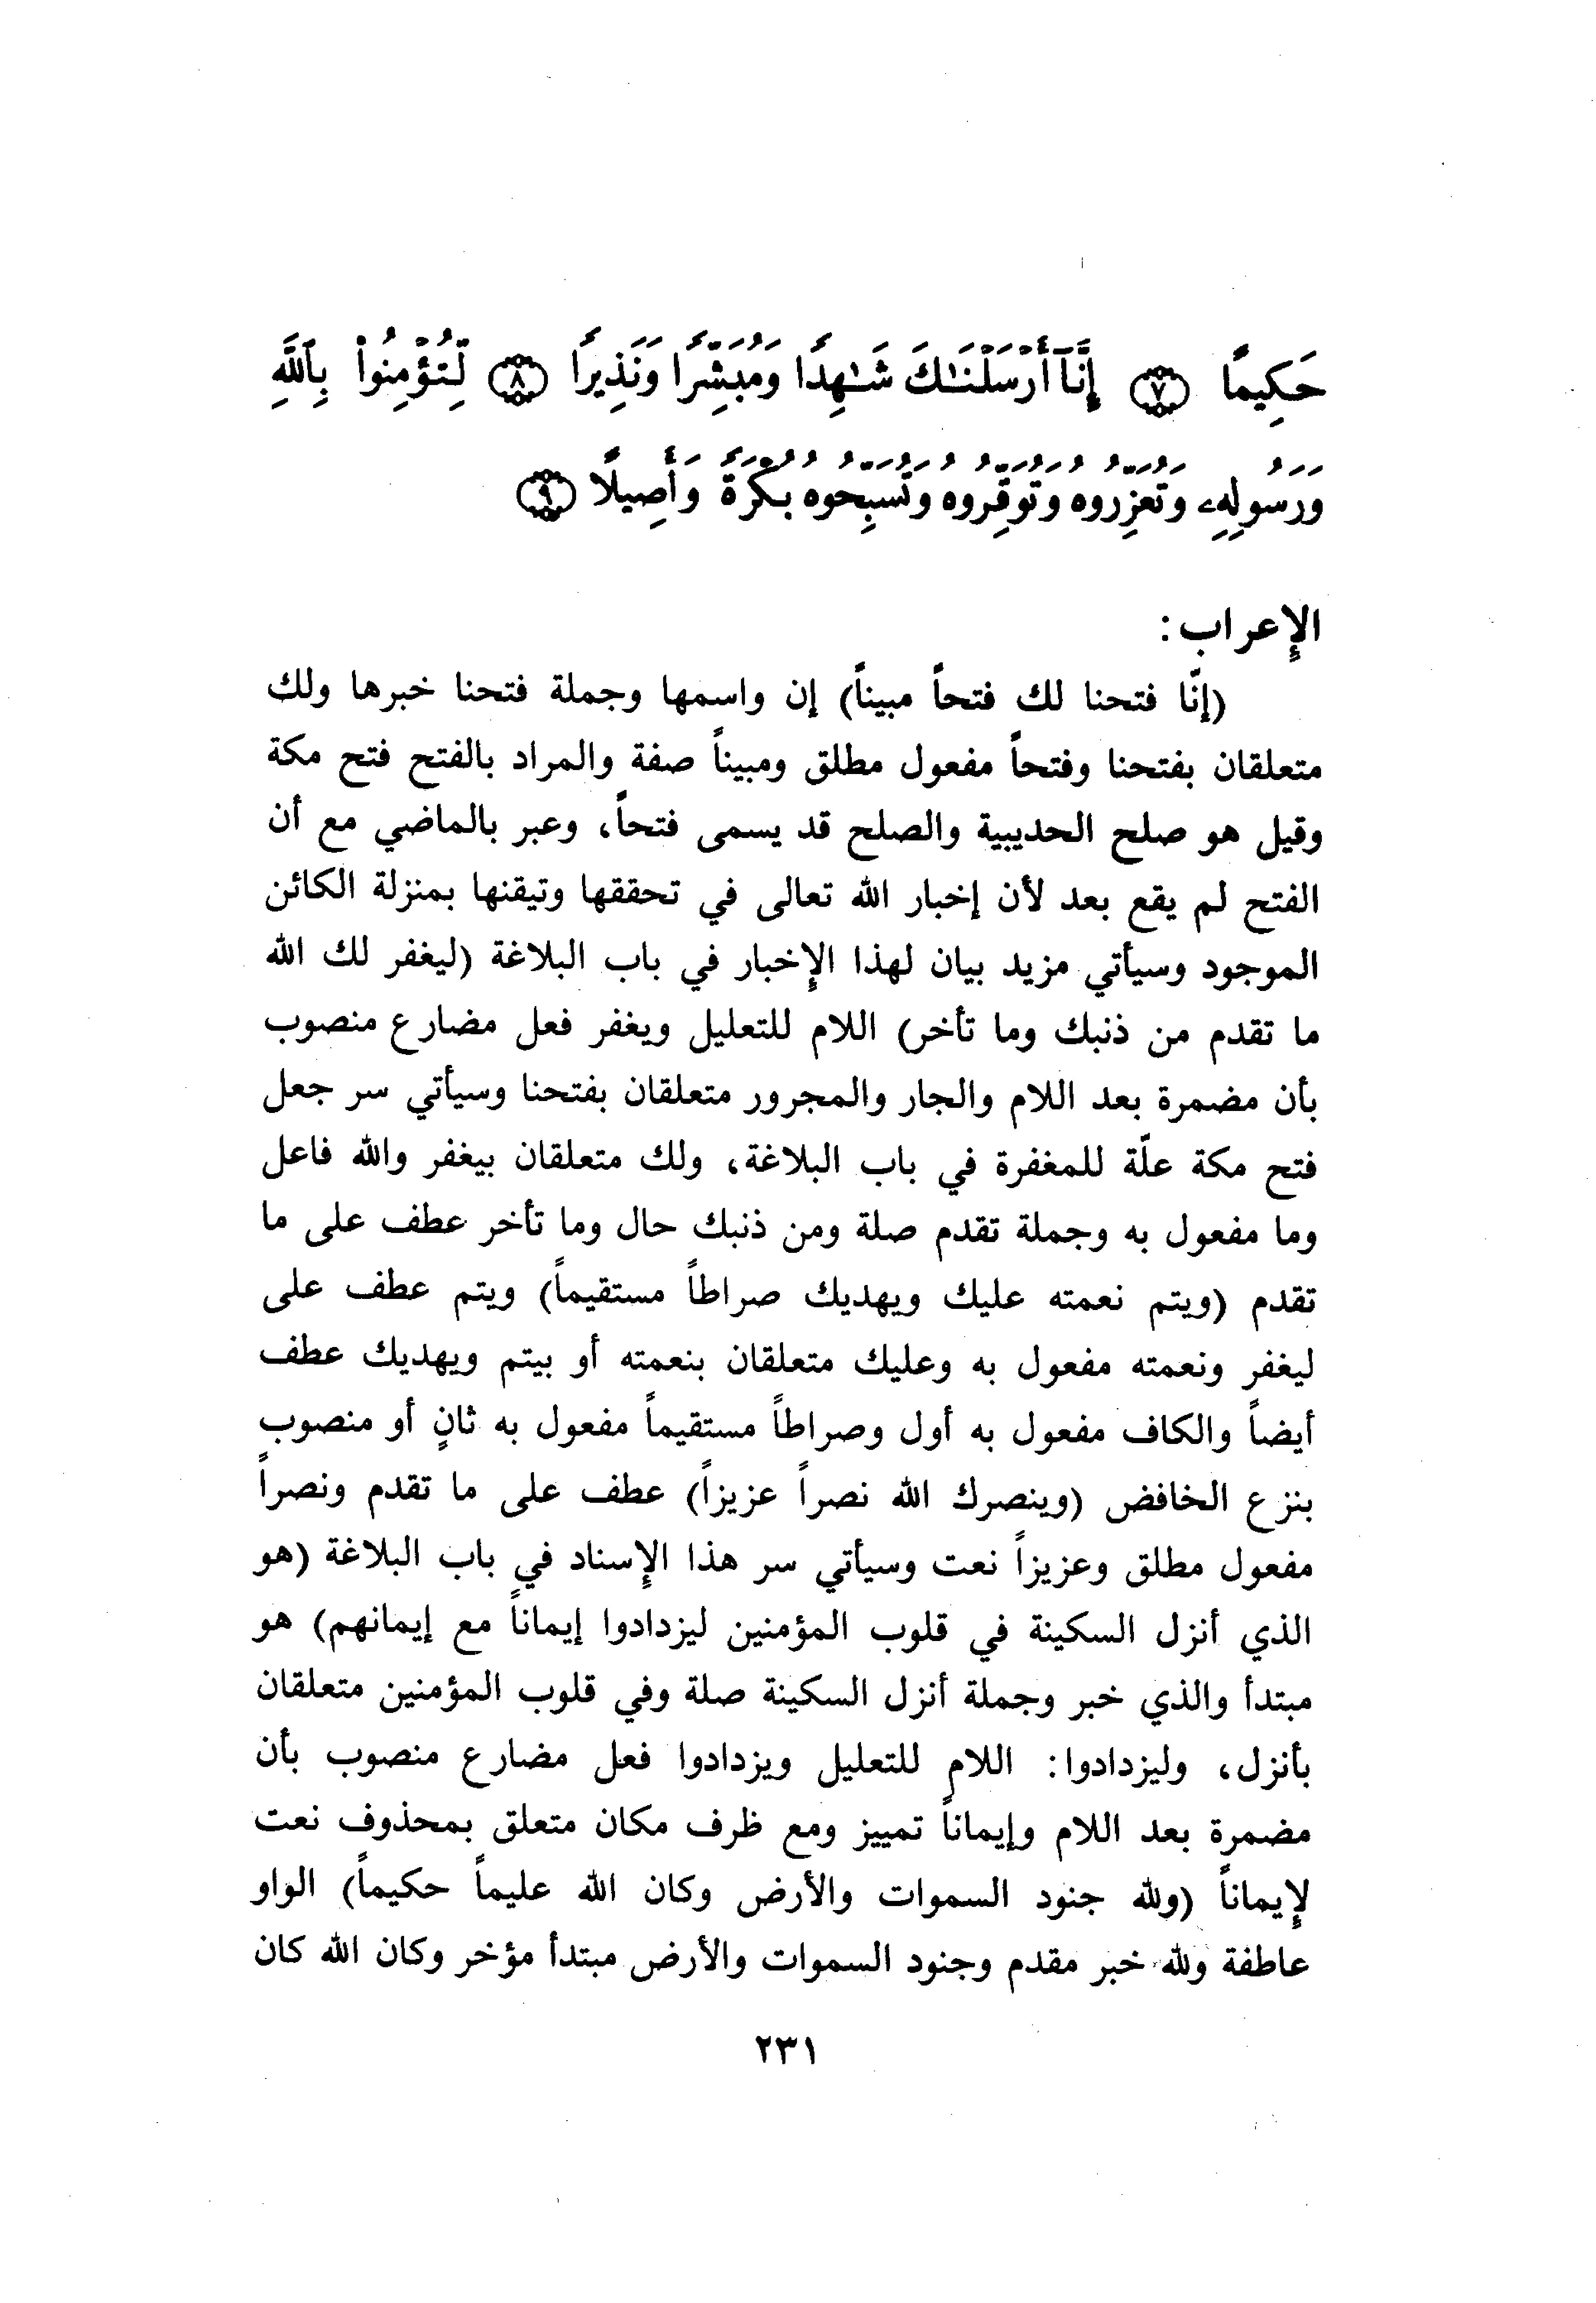 حَكِيمًا ﴿٧﴾ إِنَّآ أَرْسَلْنَـٰكَ شَـٰهِدًا وَمُبَشِّرًا وَنَذِيرًا ﴿٨﴾ لِّتُؤْمِنُوا۟ بِٱللَّهِ
وَرَسُولِهِۦ وَتُعَزِّرُوهُ وَتُوَقِّرُوهُ وَتُسَبِّحُوهُ بُكْرَةً وَأَصِيلًا ﴿٩﴾
الإِعراب:
(إنّا فتحنا لك فتحاً مبيناً) إن واسمها وجملة فتحنا خبرها ولك
متعلقان بفتحنا وفتحاً مفعول مطلق ومبيناً صفة والمراد بالفتح فتح مكة
وقيل هو صلح الحديبية والصلح قد يسمى فتحاً، وعبر بالماضي مع أن
الفتح لم يقع بعد لأن إخبار الله تعالى في تحققها وتيقنها بمنزلة الكائن
الموجود وسيأتي مزيد بيان لهذا الإِخبار في باب البلاغة (ليغفر لك الله
ما تقدم من ذنبك وما تأخر) اللام للتعليل ويغفر فعل مضارع منصوب
بأن مضمرة بعد اللام والجار والمجرور متعلقان بفتحنا وسيأتي سر جعل
فتح مكة علّة للمغفرة في باب البلاغة، ولك متعلقان بيغفر والله فاعل
وما مفعول به وجملة تقدم صلة ومن ذنبك حال وما تأخر عطف على ما
تقدم (ويتم نعمته عليك ويهديك صراطاً مستقيماً) ويتم عطف على
ليغفر ونعمته مفعول به وعليك متعلقان بنعمته أو بيتم ويهديك عطف
أيضاً والكاف مفعول به أول وصراطاً مستقيماً مفعول به ثانٍ أو منصوب
بنزع الخافض (وينصرك الله نصراً عزيزاً) عطف على ما تقدم ونصراً
مفعول مطلق وعزيزاً نعت وسيأتي سر هذا الإِسناد في باب البلاغة (هو
الذي أنزل السكينة في قلوب المؤمنين ليزدادوا إيماناً مع إيمانهم) هو
مبتدأ والذي خبر وجملة أنزل السكينة صلة وفي قلوب المؤمنين متعلقان
بأنزل، وليزدادوا: اللام للتعليل ويزدادوا فعل مضارع منصوب بأن
مضمرة بعد اللام وإيماناً تمييز ومع ظرف مكان متعلق بمحذوف نعت
لإِيماناً (ولله جنود السموات والأرض وكان الله عليماً حكيماً) الواو
عاطفة ولله خبر مقدم وجنود السموات والأرض مبتدأ مؤخر وكان الله كان
٢٣١